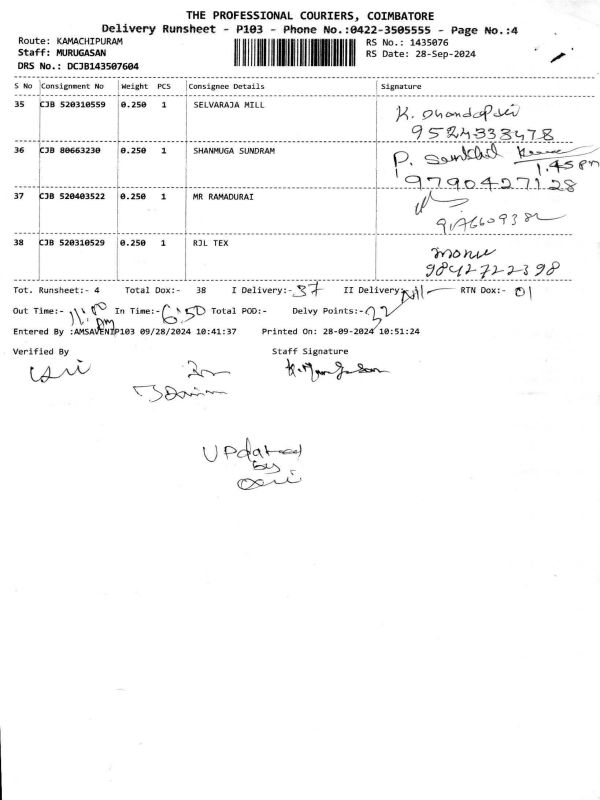 THE PROFESSIONAL COURIERS, COIMBATORE
Delivery Runsheet - P103 - Phone No.:0422-3505555 - Page No.:4
Route: KAMACHIPURAM RS No.: 1435076
Staff: MURUGASAN RS Date: 28-Sep-2024
DRS No.: DCJB143507604
S No Consignment No Weight PCS Consignee Details Signature
35 CJB 520310559 0.250 1 SELVARAJA MILL K.
9524338478
36 CJB 80663230 0.250 1 SHANMUGA SUNDRAM P. Senthil
1.45 pm
9790427128
37 CJB 520403522 0.250 1 MR RAMADURAI
38 CJB 520310529 0.250 1 RJL TEX
9842722398
Tot. Runsheet:- 4 Total Dox:- 38 I Delivery:- 37 II Delivery:- Nil RTN Dox:- 01
Out Time:- 11:00 Am In Time:- 6:50 Total POD:- Delvy Points:- 32
Entered By :AMSAVENIP103 09/28/2024 10:41:37 Printed On: 28-09-2024 10:51:24
Verified By Staff Signature
UPdated
by